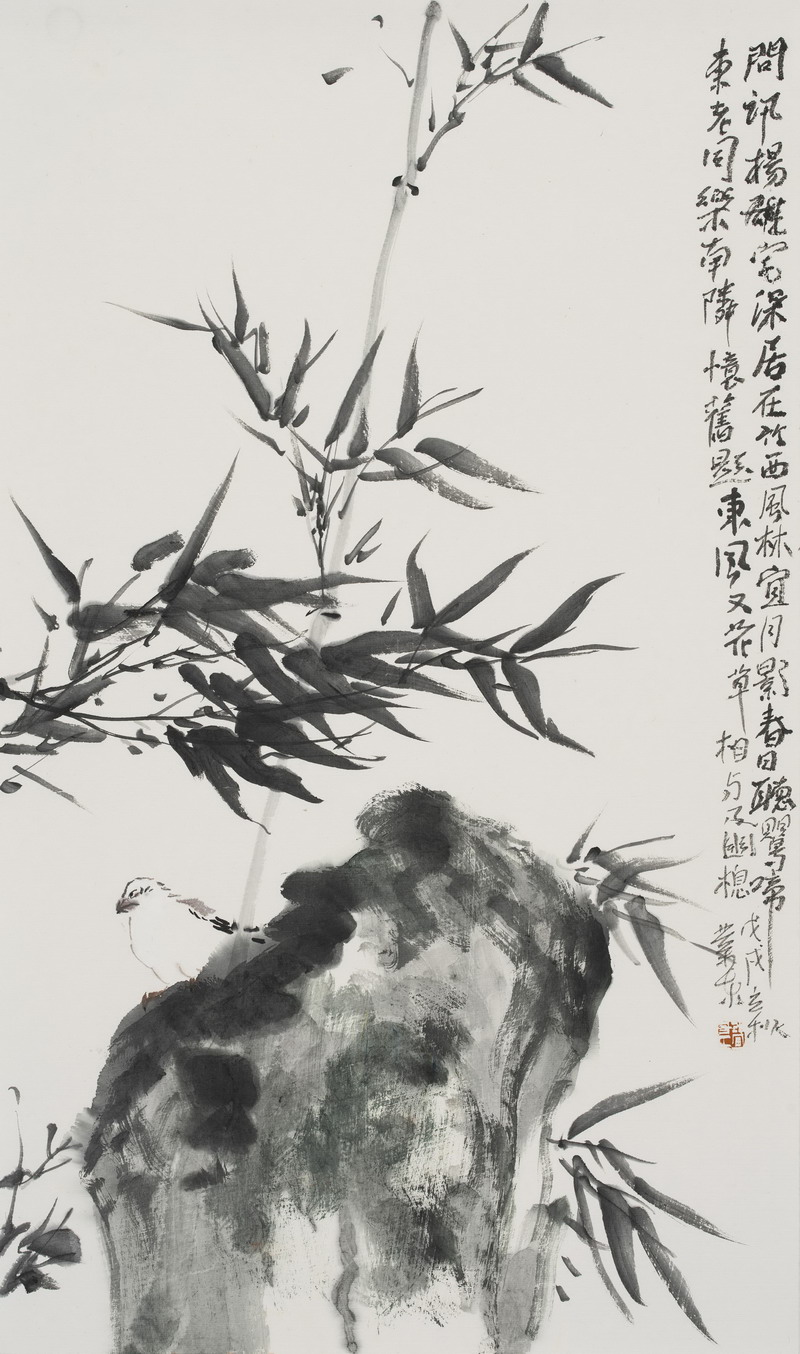 問訊楊雄宅深居在竹西風林宜月影春日聽鸎啼 戊戌立秋
東老同樂南隣憶舊題東風又花草相与及幽棲